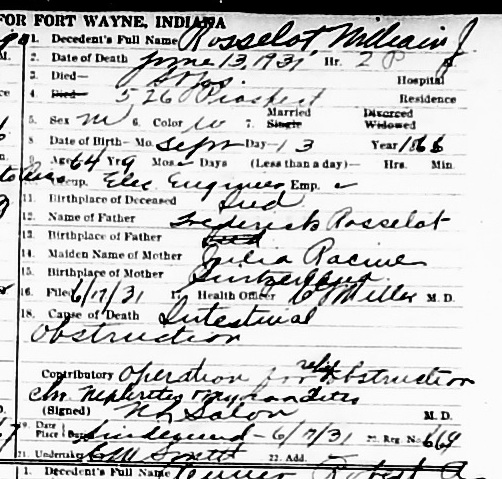 FOR FORT WAYNE, INDIANA
1. Decedent's Full Name Rosselot William J.
2. Date of Death June 13, 1931 Hr. 2 P M.
3. Died— St Jos. Hospital
4. Died— 526 Prospect Residence
5. Sex M 6. Color W 7. Married Single Divorced Widowed
8. Date of Birth— Mo. Sept Day— 13 Year 1866
9. Age 64 Yrs 9 Mos — Days (Less than a day)— Hrs. Min.
10. Occup. Elec Engineer Emp.
11. Birthplace of Deceased Ind
12. Name of Father Frederick Rosselot
13. Birthplace of Father Ind
14. Maiden Name of Mother Julia Racine
15. Birthplace of Mother Switzerland
16. Filed 6/17/31 17. Health Officer Miller M. D.
18. Cause of Death Intestinal
Obstruction
Contributory Operation for relief Obstruction
Chr. Nephritis Myocarditis
(Signed) Salon M. D.
19. Date Place Lindenwood - 6/17/31 22. Reg. No. 664
21. Undertaker CM Smith 22. Add.
1. Decedent's Full Name Robert A.